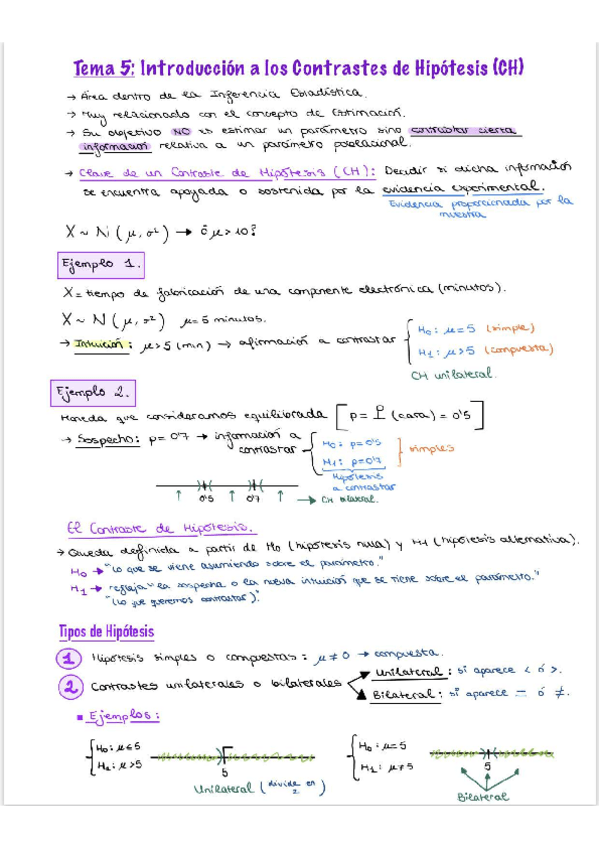 Tema 5: Introducción a los Contrastes de Hipótesis (CH)
→ Área dentro de la Inferencia Estadística.
→ Muy relacionado con el concepto de Estimación.
→ Su objetivo NO es estimar un parámetro sino contrastar cierta
información relativa a un parámetro poblacional.
→ Clave de un Contraste de Hipótesis (CH): Decidir si dicha información
se encuentra apoyada o sostenida por la evidencia experimental.
Evidencia proporcionada por la
muestra
X ~ N (μ, σ²) → ¿μ > 10?
Ejemplo 1.
X = tiempo de fabricación de una componente electrónica (minutos).
X ~ N (μ, σ²) μ = 5 minutos.
→ Intuición: μ > 5 (min) → afirmación a contrastar
H₀: μ = 5 (simple)
H₁: μ > 5 (compuesta)
CH unilateral.
Ejemplo 2.
Moneda que consideramos equilibrada [p = P (cara) = 0'5]
→ Sospecho: p = 0'7 → información a
contrastar
H₀: p = 0'5
H₁: p = 0'7
simples
Hipótesis
a contrastar
0'5 0'7
→ CH bilateral.
El Contraste de Hipótesis.
→ Queda definida a partir de H₀ (hipótesis nula) y H₁ (hipótesis alternativa).
H₀ → "Lo que se viene asumiendo sobre el parámetro."
H₁ → refleja "la sospecha o la nueva intuición que se tiene sobre el parámetro."
"(Lo que queremos contrastar)."
Tipos de Hipótesis
1 Hipótesis simples o compuestas: μ ≠ 0 → compuesta.
2 Contrastes unilaterales o bilaterales
Unilateral: si aparece < ó >.
Bilateral: si aparece = ó ≠.
▪ Ejemplos:
H₀: μ ≤ 5
H₁: μ > 5
5
Unilateral (divide en 2)
H₀: μ = 5
H₁: μ ≠ 5
5
Bilateral